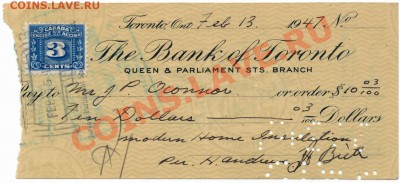 COINS.LAVE.RU
Toronto, Ont Feb 13 1947 No
CANADA
EXCISE D'ACCISE
3
CENTS
The Bank of Toronto
QUEEN & PARLIAMENT STS. BRANCH
Pay to Mr J P. Oconnor or order $10 03/100
COINS.LAVE.RU
Ten Dollars 03/100 Dollars
Modern Home Insulation
Per. H. Andrew
COINS.LAVE.RU